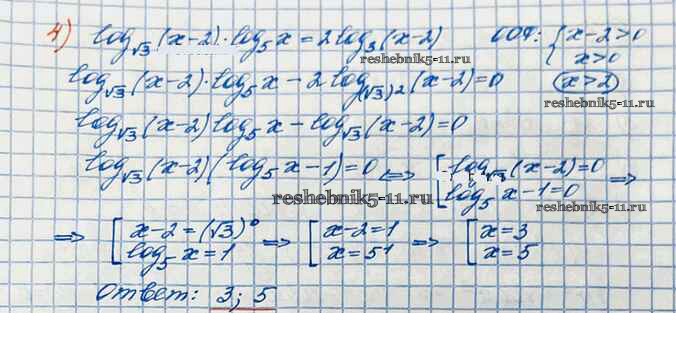 4) log_√3 (x-2)·log_5 x = 2log_3 (x-2) ОДЗ: { x-2>0
x>0
reshebnik5-11.ru
log_√3 (x-2)·log_5 x - 2 log_(√3)2 (x-2)=0 (x>2)
reshebnik5-11.ru
log_√3 (x-2) log_5 x - log_√3 (x-2)=0
log_√3 (x-2)(log_5 x-1)=0 <=> [ log_√3 (x-2)=0 =>
log_5 x-1=0
reshebnik5-11.ru
reshebnik5-11.ru
=> [ x-2=(√3)⁰ => [ x-2=1 => [ x=3
log_5 x=1 x=5¹ x=5
Ответ: 3; 5